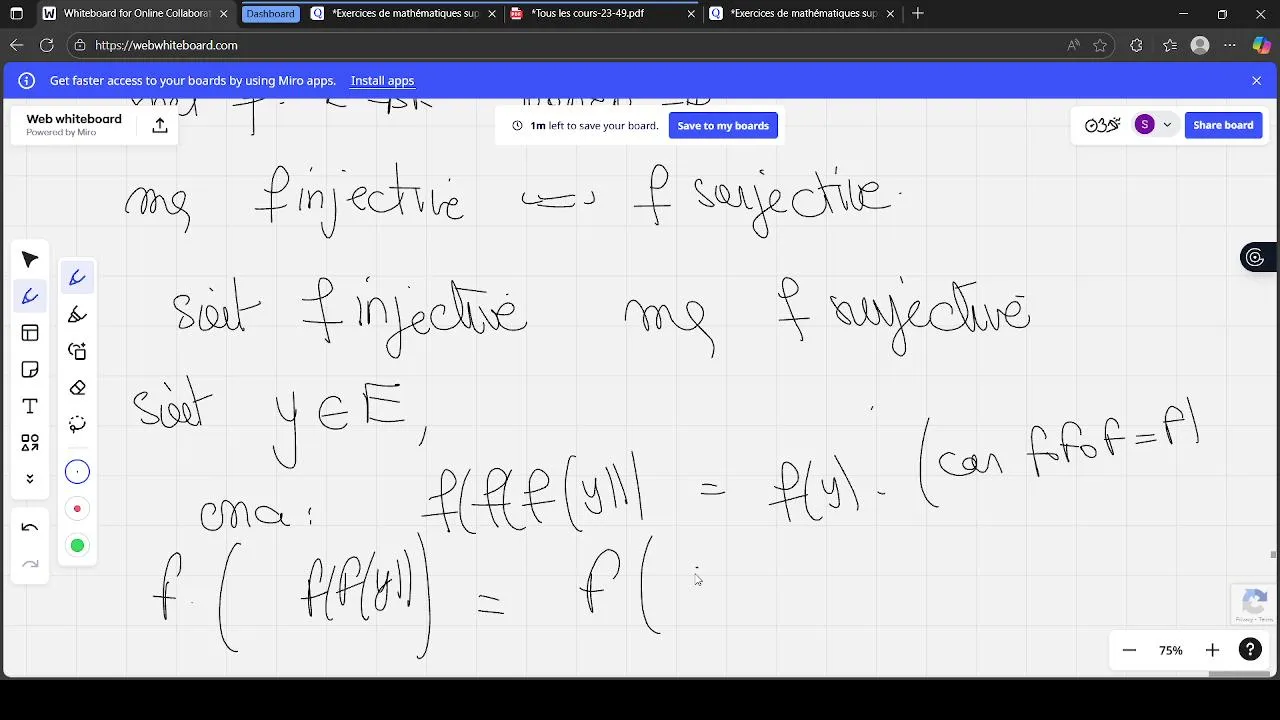 Whiteboard for Online Collaborat
Dashboard
*Exercices de mathématiques sup
*Tous les cours-23-49.pdf
*Exercices de mathématiques sup
https://webwhiteboard.com
Get faster access to your boards by using Miro apps. Install apps
Web whiteboard
Powered by Miro
1m left to save your board. Save to my boards
S
Share board
mq f injective <=> f surjective.
soit f injective mq f surjective
soit y ∈ E,
on a : f(f(f(y))) = f(y). (car fofof = f)
f( f(f(y)) ) = f(
75%
Privacy - Terms